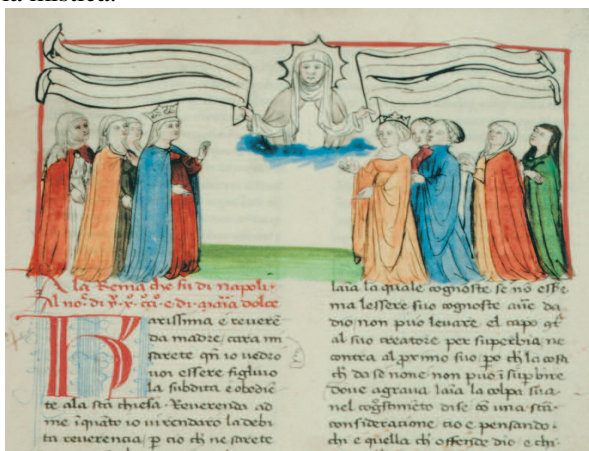 la mistica.
A la Reina che fu di napoli.
Al no. di y. x. cro. e di maria dolce
Karissima e revere
da madre, cara mi
sarete qn io vedro
voi essere figluio
la subdita e obedie
te ala sca chiesa. Reverenda ad
me i quato io vi rendaro la debi
ta reverentia, p cio ch ne sarete
laia la quale cognosce se no esse
ma lessere suo cognosce ave da
dio non puo levare el capo
al suo creatore per superbia, ne
contra al primo suo, po ch la cosa
ch da se none non puo i supbire
Dove agrava laia la colpa sua
nel dise co una
consideratione cio e pensando.
chi e quella ch offende dio e chi.